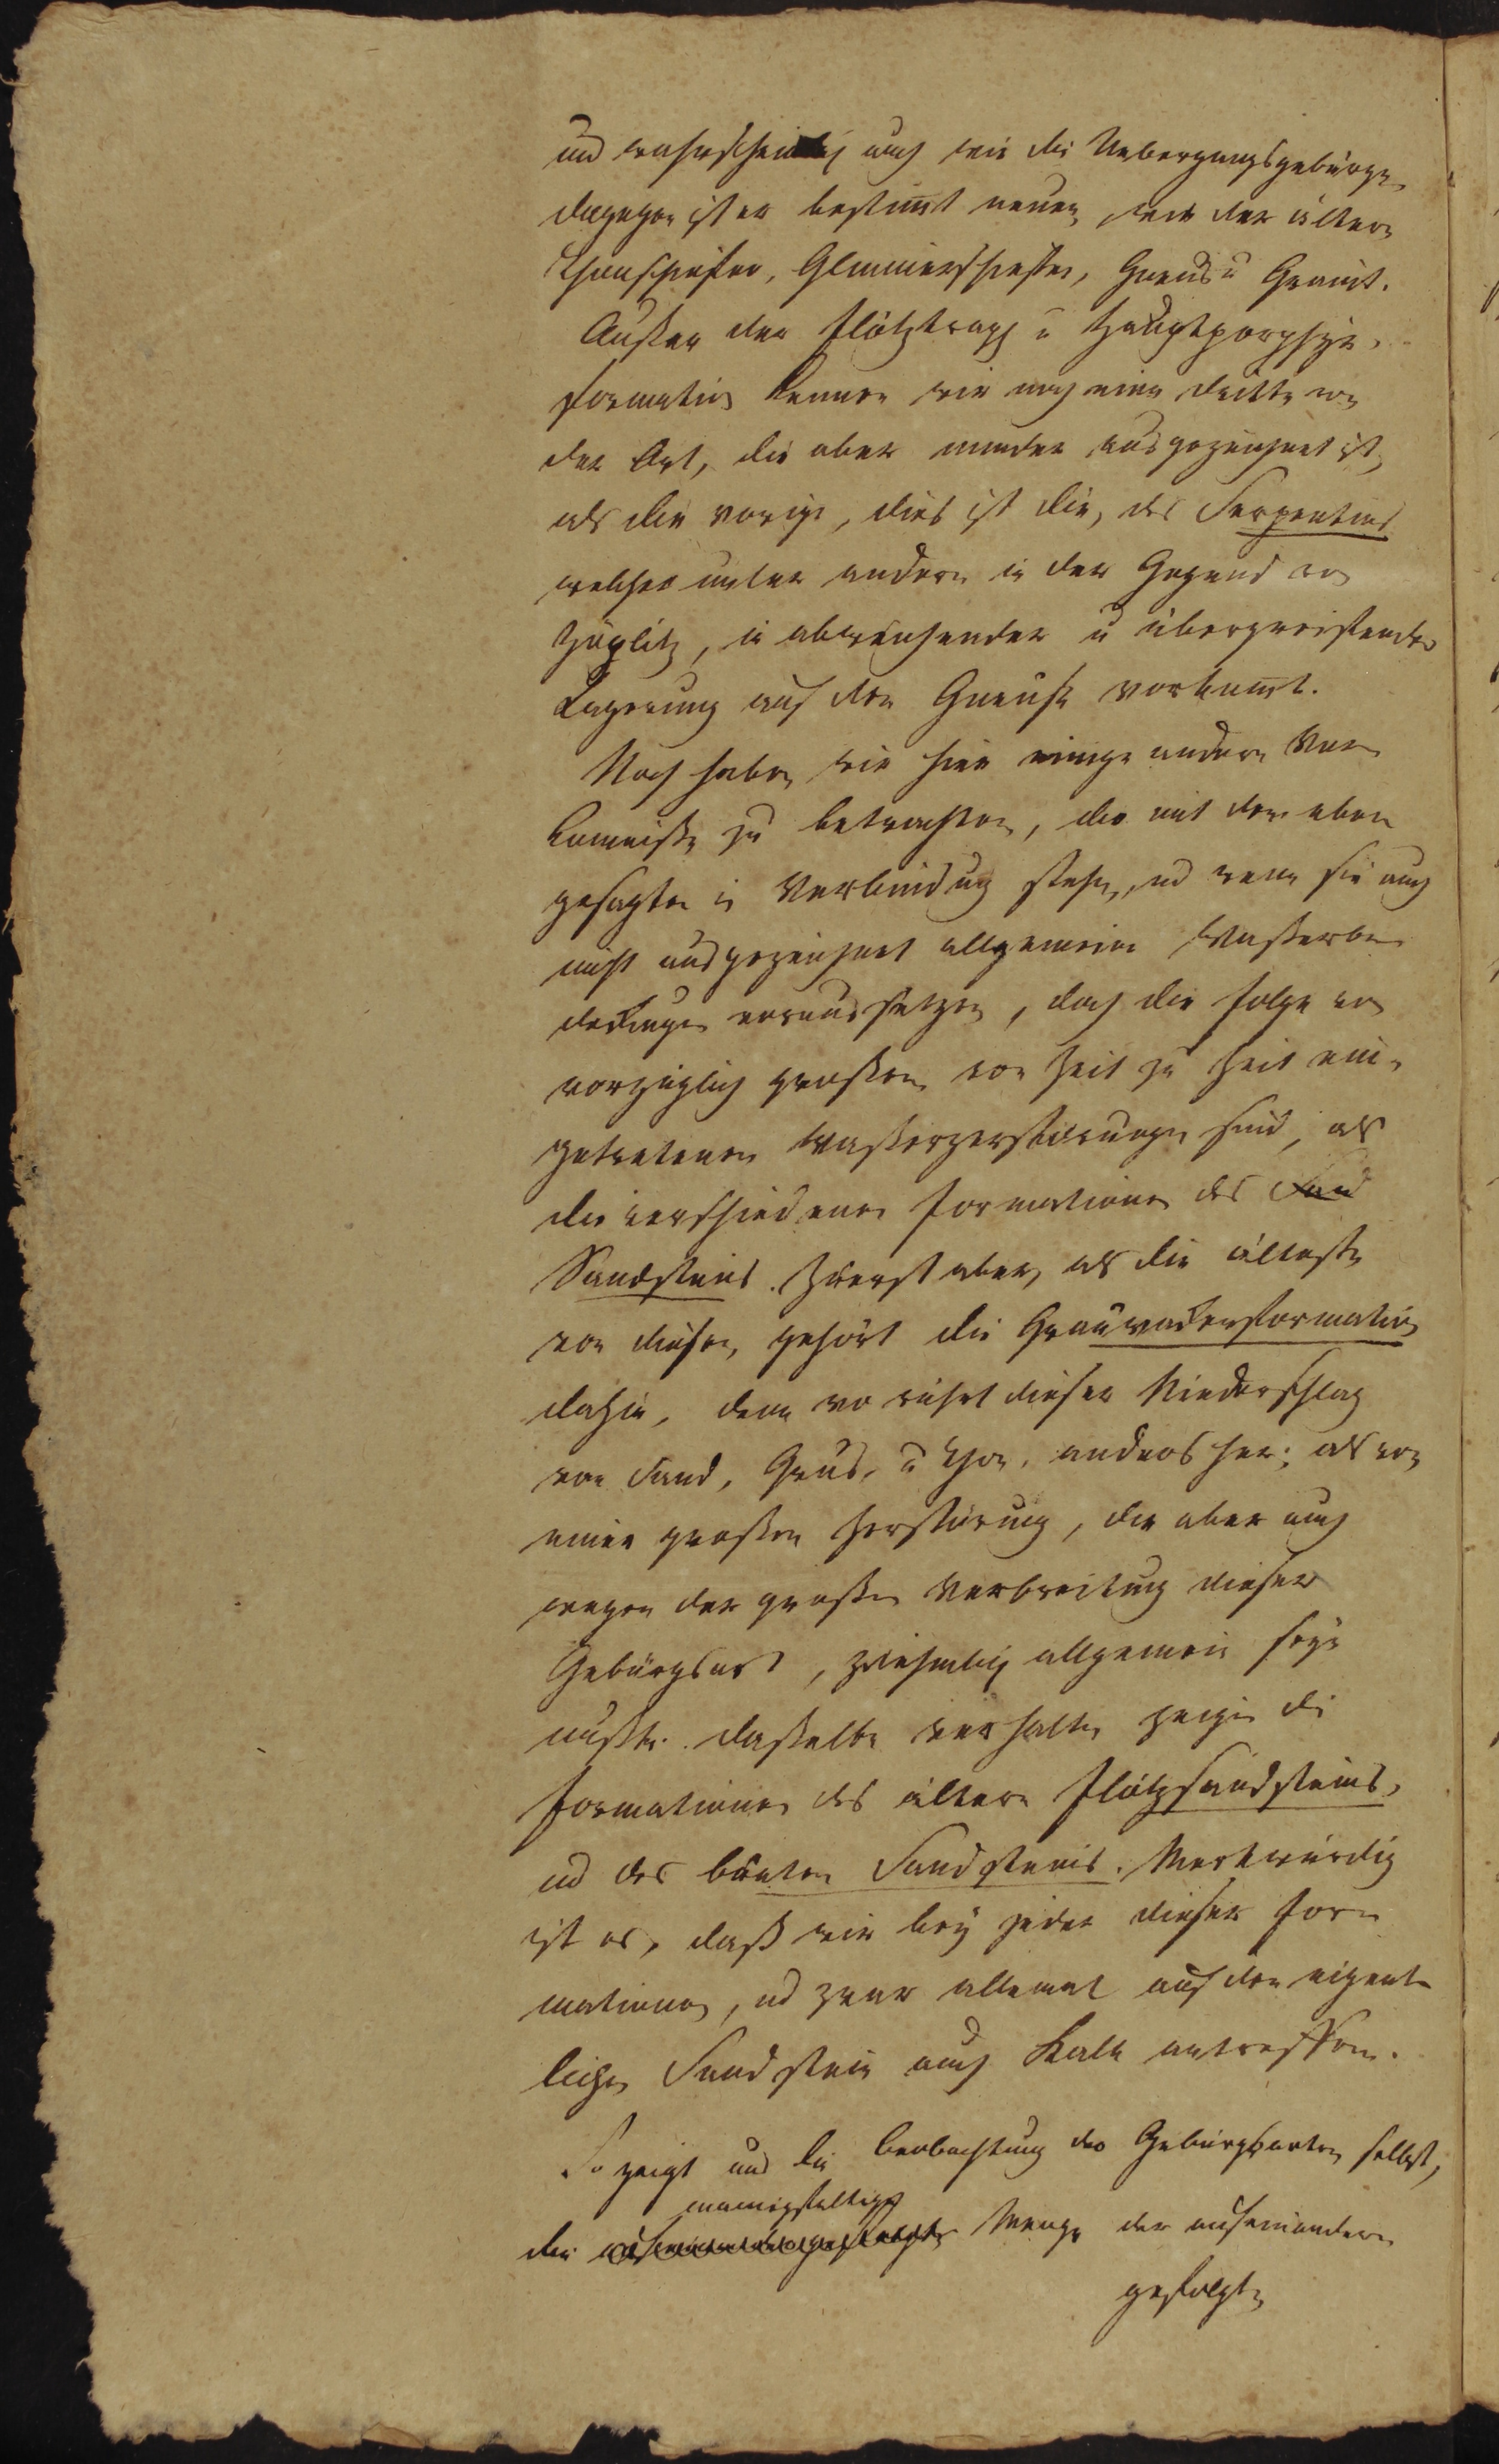 und wahrscheinlich auch wie die Uebergangsgebürge
dagegen ist er bestimt neuer, wie der ältere
Thonschiefer, Glimmerschiefer, Gneus u Granit.
Außer der Flötztrapp u Hauptporphyr-
formation kennen wir noch eine dritte von
der Art, die aber minder ausgezeichnet ist,
als die vorige, dies ist die, des Serpentins
welcher unter andern in der Gegend von
Zöplitz, in abweichender u übergreifender
Lagerung auf den Gneuße vorkomt.
Noch haben wir hier einige andere Vor-
komniße zu betrachten, die mit dem eben
gesagten in Verbindung stehn, und wenn sie auch
nicht ausgezeichnet allgemeine Waßerbe-
deckungen voraussetzen, doch die Folge von
vorzüglich großen von Zeit zu Zeit ein-
getretenen Waßerzerstörungen sind, als
die verschiedenen Formationen des Sand
Sandsteins. Zuerst aber, als die älteste
von diesen, gehört die Grauwackenformation
dahin, denn wo rührt dieser Niederschlag
von Sand, Grus, u Thon, anders her; als von
einer großen Zerstörung, die aber auch
wegen der großen Verbreitung dieser
Gebürgsart, ziehmlich allgemein seyn
mußte. Daßelbe verhalten zeigen die
Formationen des ältern Flötzsandsteins,
und des bunten Sandsteins. Merkwürdig
ist es, daß wir bey jeder dieser For-
mationen, und zwar allemal auf den eigent-
lichen Sandstein auch Kalk antreffen.
So zeigt uns die Beobachtung der Gebürgsarten selbst,
mannigfaltige
die Menge der aufeinander
gefolgten